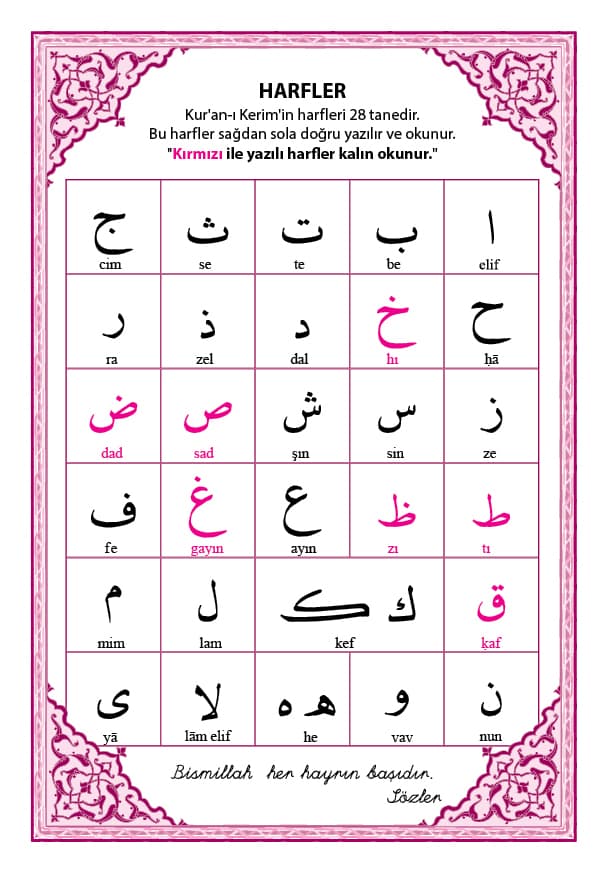 HARFLER
Kur'an-ı Kerim'in harfleri 28 tanedir.
Bu harfler sağdan sola doğru yazılır ve okunur.
"Kırmızı ile yazılı harfler kalın okunur."
ا ب ت ث ج
elif be te se cim
ح خ د ذ ر
ḥā hı dal zel ra
ز س ش ص ض
ze sin şın sad dad
ط ظ ع غ ف
tı zı ayın gayın fe
ق ك ک ل م
ḳaf kef lam mim
ن و ه ه لا ى
nun vav he lām elif yā
Bismillah her hayrın başıdır.
Sözler